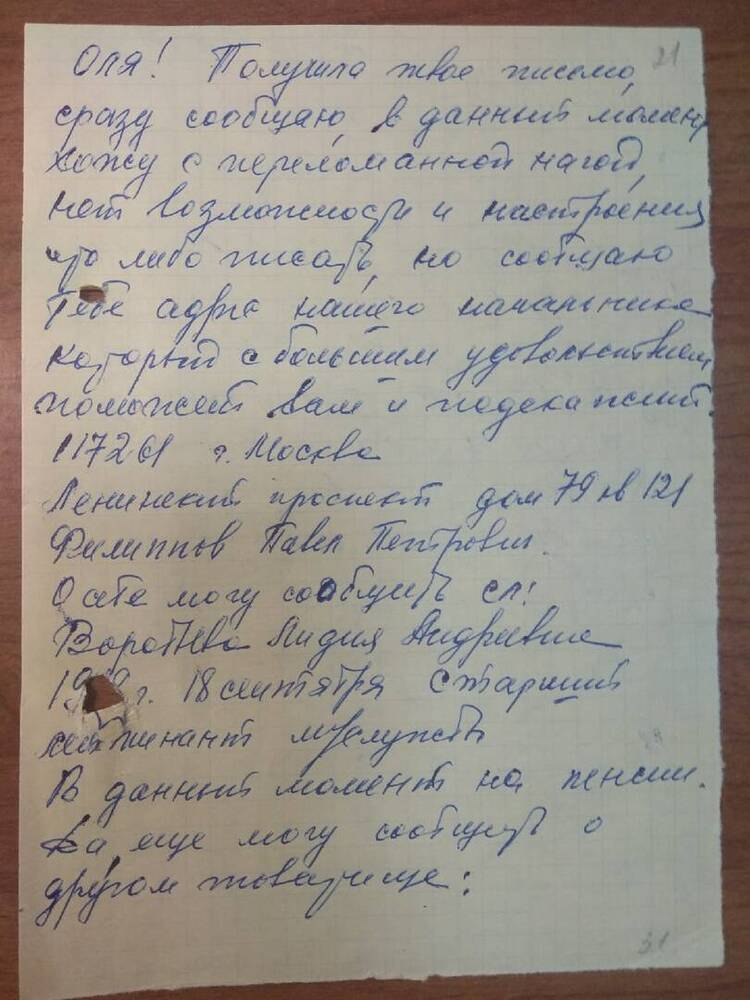 21
Оля! Получила твое письмо,
сразу сообщаю, в данный момент
хожу с переломанной ногой,
нет возможности и настроения
что либо писать, но сообщаю
тебе адрес нашего начальника
который с большим удовольствием
поможет вам и подскажит.
117261 г. Москва
Ленинский проспект дом 79 кв 121
Филиппов Павел Петрович.
О себе могу сообщить сл:
Воробьёва Лидия Андреевна
г. 18 сентября старший
лейтинант м/службы
В данный момент на пенсии.
Да, еще могу сообщить о
другом товарище:
31